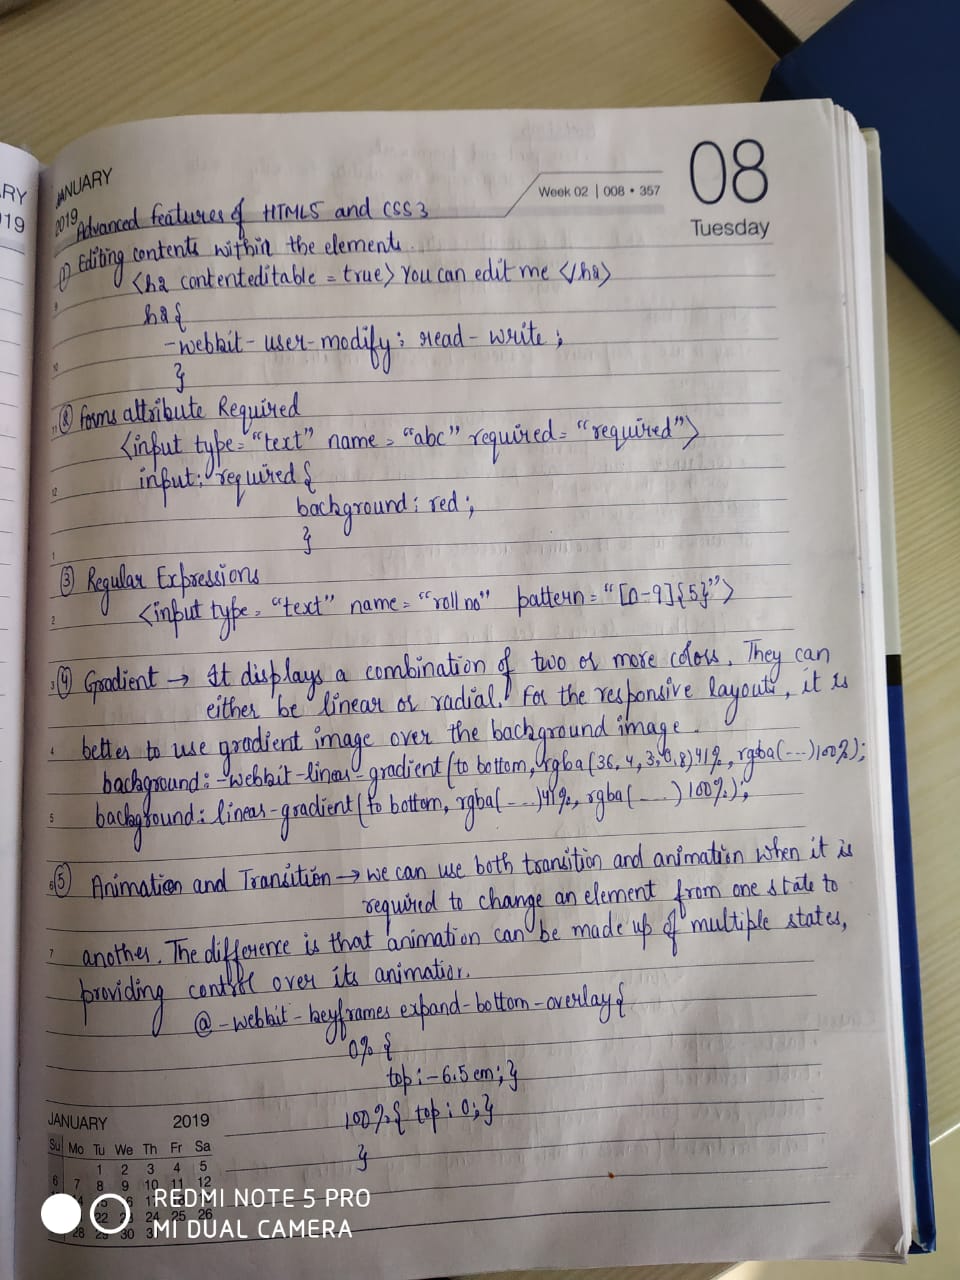 RY
019
JANUARY
2019
Week 02 | 008 • 357
08
Tuesday
Advanced features of HTML5 and CSS3
① Editing contents within the element.
<h2 contenteditable = true> You can edit me </h2>
h2{
-webkit-user-modify: read-write;
}
② forms attribute Required
<input type="text" name = "abc" required = "required">
input:required {
background: red;
}
③ Regular Expressions
<input type = "text" name = "roll no" pattern = "[0-9]{5}">
④ Gradient → It displays a combination of two or more colors. They can
either be linear or radial. For the responsive layouts, it is
better to use gradient image over the background image.
background: -webkit-linear-gradient(to bottom, rgba(36, 4, 3, 0.8)41%, rgba(---)100%);
background: linear-gradient(to bottom, rgba(---)41%, rgba(----) 100%);
⑤ Animation and Transition → we can use both transition and animation when it is
required to change an element from one state to
another. The difference is that animation can be made up of multiple states,
providing control over its animation.
@-webkit-keyframes expand-bottom-overlay{
0% {
top:-6.5em;}
100%{ top: 0;}
}
9
10
11
12
1
2
3
4
5
6
7
JANUARY 2019
Su Mo Tu We Th Fr Sa
1 2 3 4 5
6 7 8 9 10 11 12
22 24 25 26
28 30
REDMI NOTE 5 PRO
MI DUAL CAMERA